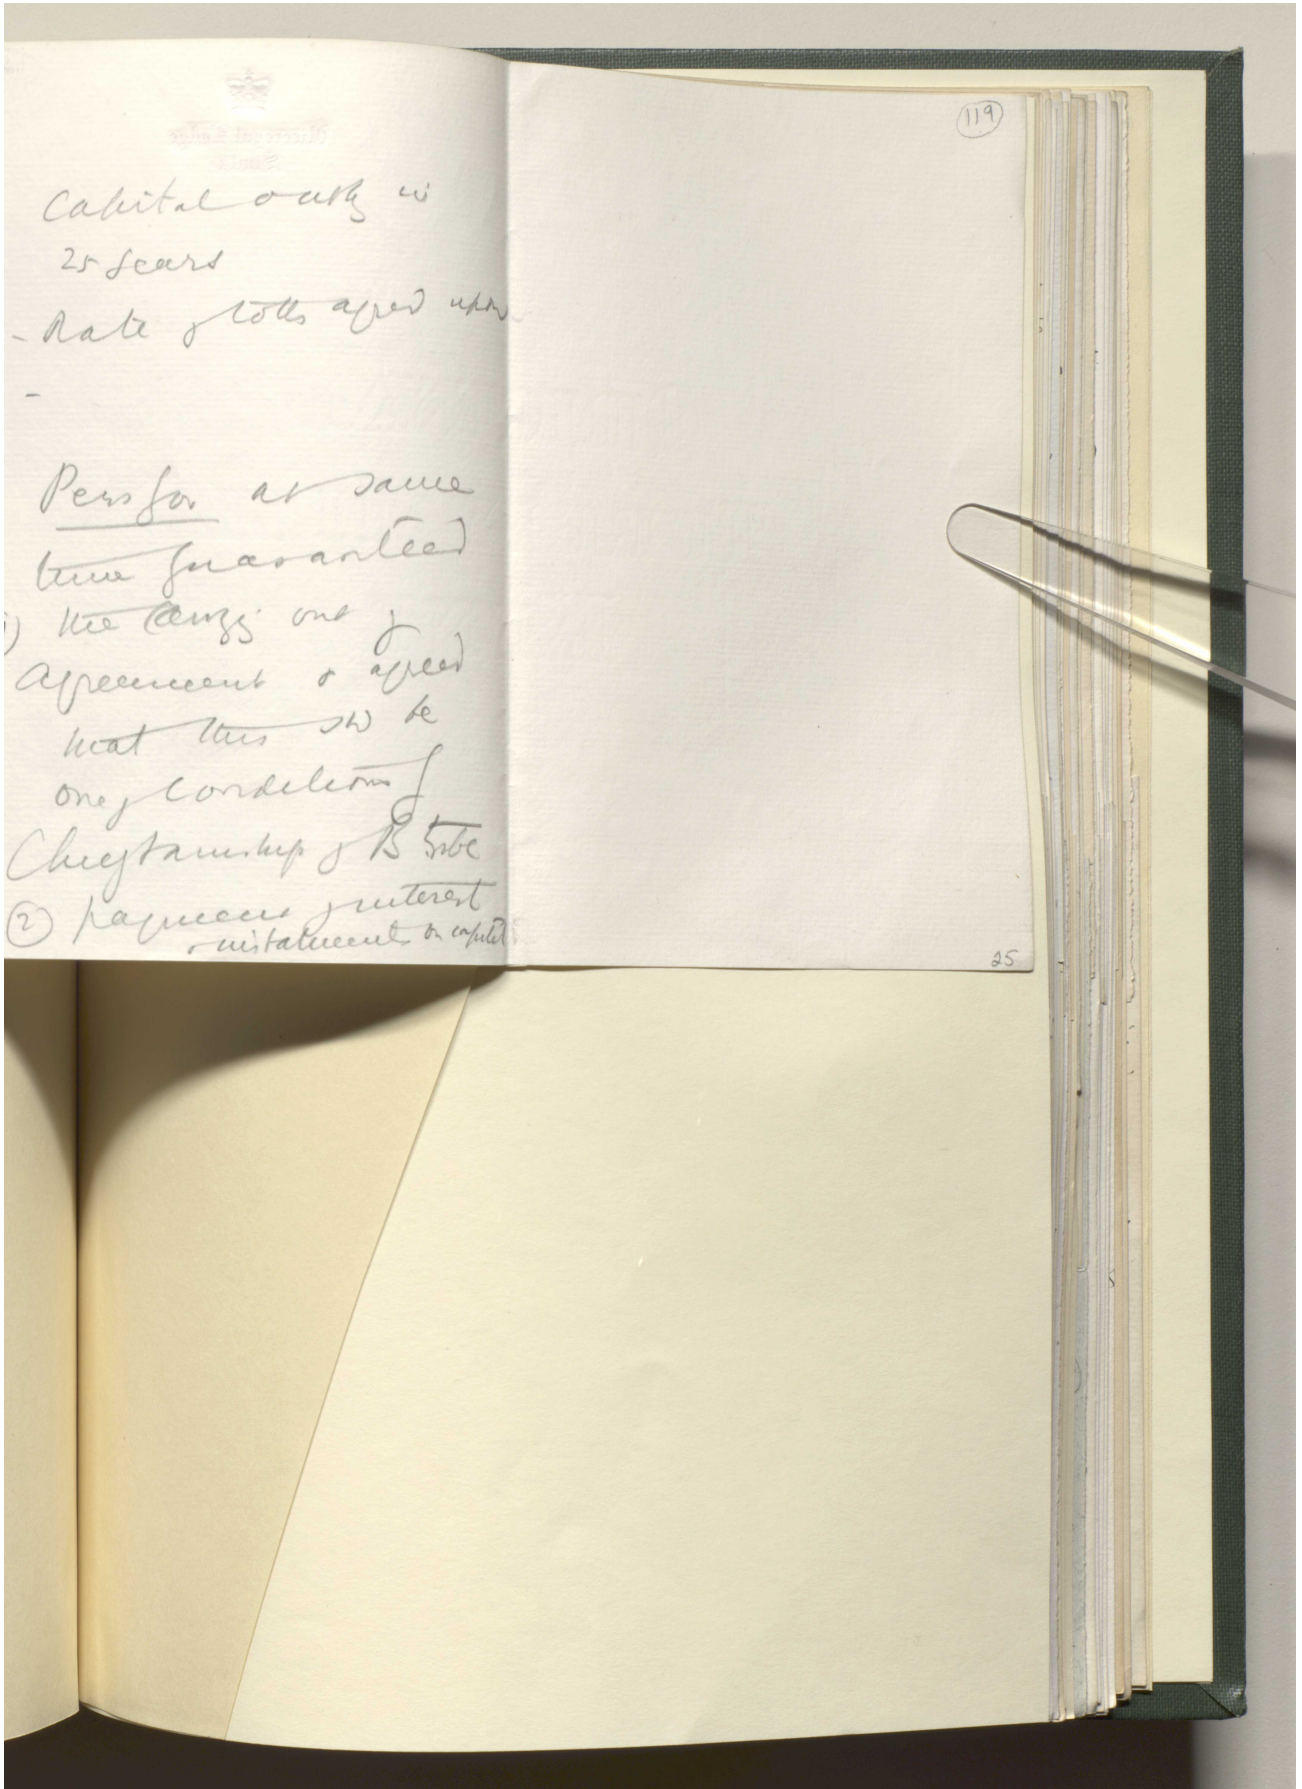 Capital outlay in
25 years
- Rate of tolls agreed upon
-
Pers Gov at same
time guaranteed
1) the carryg out of
Agreement & agreed
that this shd be
one of conditions of
Chieftainship of B tribe
② payment of interest
& instalments on capital
119
25